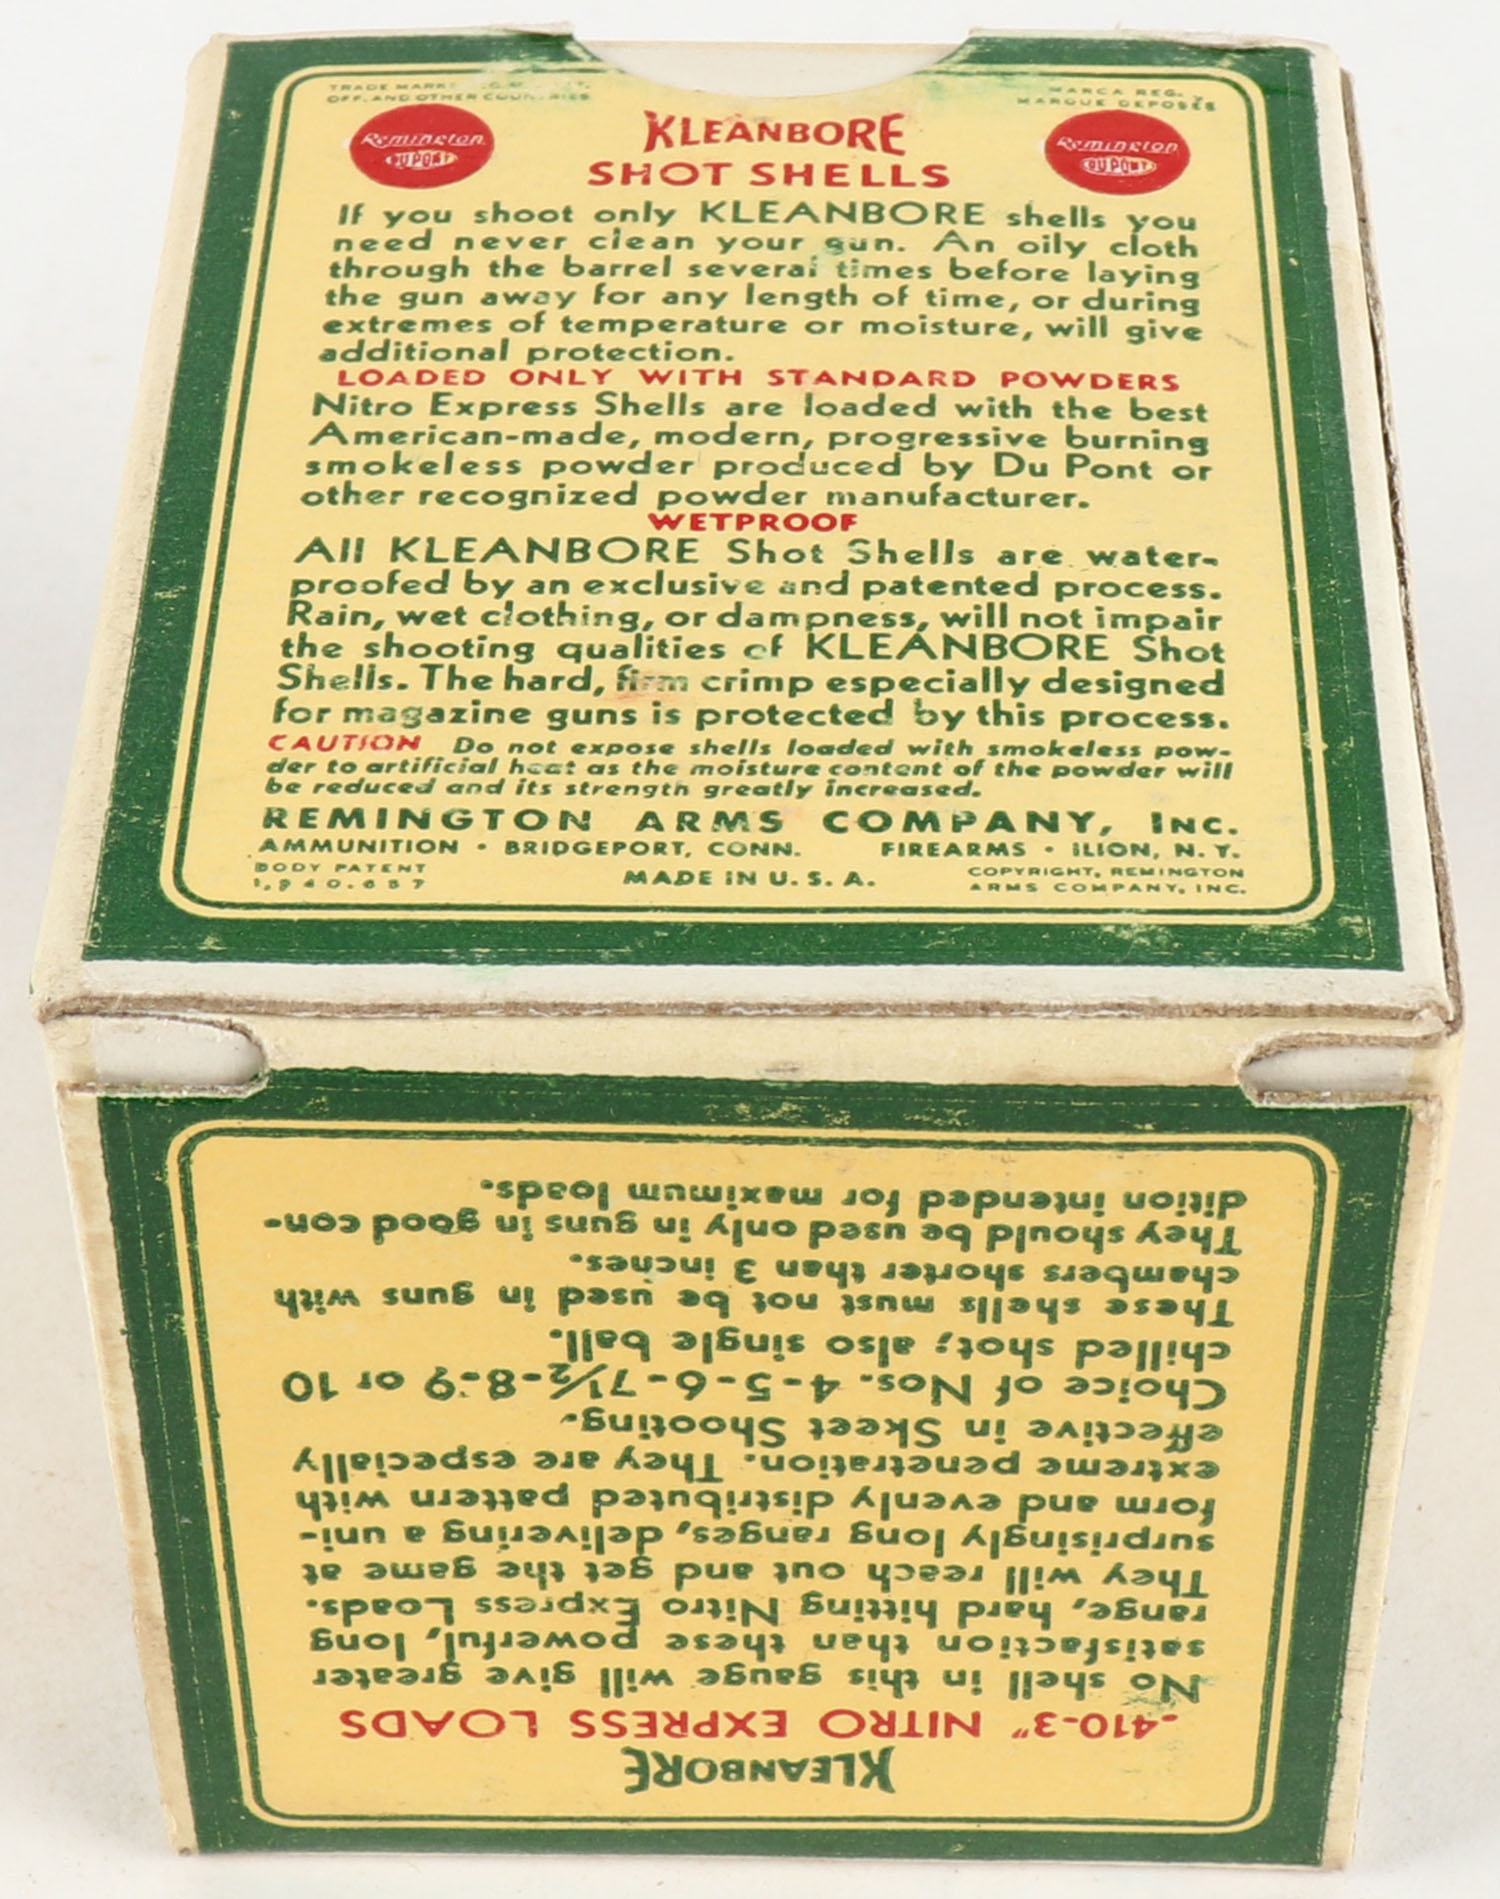 TRADE MARK
OFF. AND OTHER COUNTRIES
MARCA REG.
MARQUE DEPOSÉE
Remington
DU PONT
Remington
DU PONT
KLEANBORE
SHOT SHELLS
If you shoot only KLEANBORE shells you
need never clean your gun. An oily cloth
through the barrel several times before laying
the gun away for any length of time, or during
extremes of temperature or moisture, will give
additional protection.
LOADED ONLY WITH STANDARD POWDERS
Nitro Express Shells are loaded with the best
American-made, modern, progressive burning
smokeless powder produced by Du Pont or
other recognized powder manufacturer.
WETPROOF
All KLEANBORE Shot Shells are water-
proofed by an exclusive and patented process.
Rain, wet clothing, or dampness, will not impair
the shooting qualities of KLEANBORE Shot
Shells. The hard, firm crimp especially designed
for magazine guns is protected by this process.
CAUTION Do not expose shells loaded with smokeless pow-
der to artificial heat as the moisture content of the powder will
be reduced and its strength greatly increased.
REMINGTON ARMS COMPANY, INC.
AMMUNITION • BRIDGEPORT, CONN. FIREARMS • ILION, N. Y.
BODY PATENT
1,940,657
MADE IN U. S. A.
COPYRIGHT, REMINGTON
ARMS COMPANY, INC.
KLEANBORE
.410-3" NITRO EXPRESS LOADS
No shell in this gauge will give greater
satisfaction than these powerful, long
range, hard hitting Nitro Express Loads.
They will reach out and get the game at
surprisingly long ranges, delivering a uni-
form and evenly distributed pattern with
extreme penetration. They are especially
effective in Skeet Shooting.
Choice of Nos. 4-5-6-7½-8-9 or 10
chilled shot; also single ball.
These shells must not be used in guns with
chambers shorter than 3 inches.
They should be used only in guns in good con-
dition intended for maximum loads.